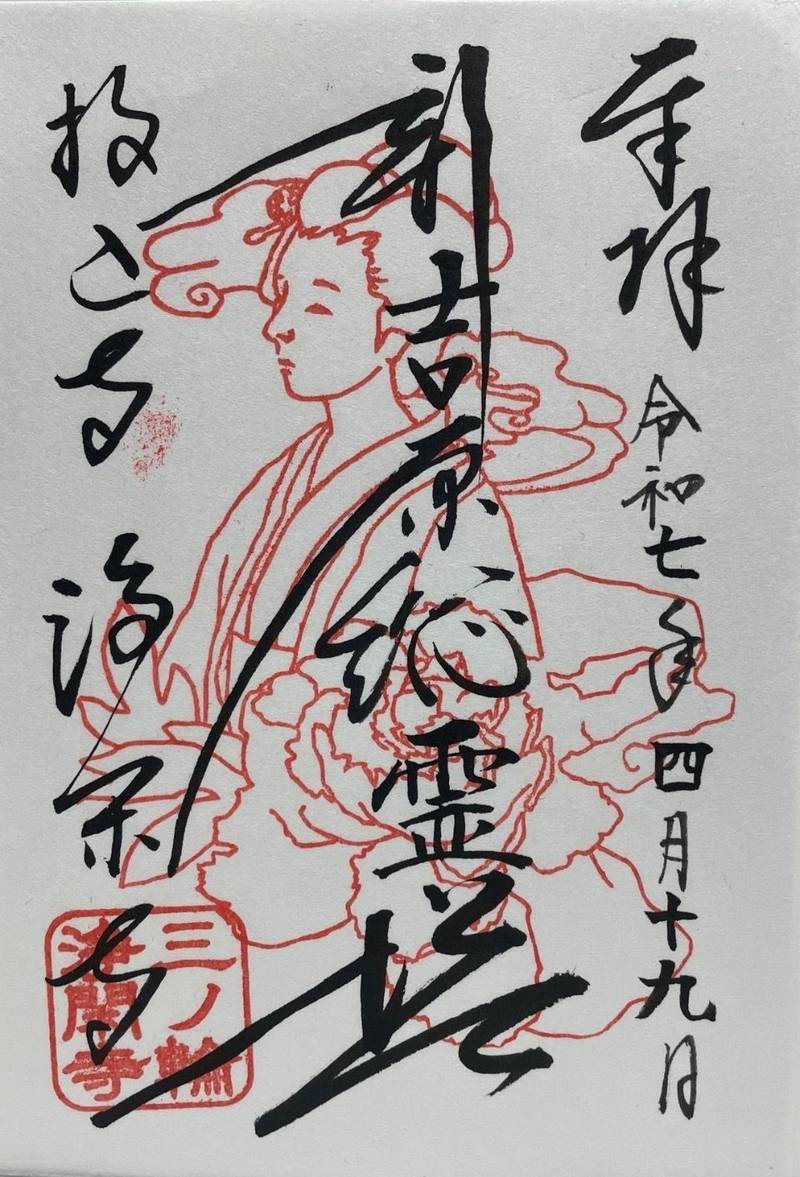 奉拝 令和七年四月十九日
新吉原総霊塔
投込寺 浄閑寺
三ノ輪
浄閑寺